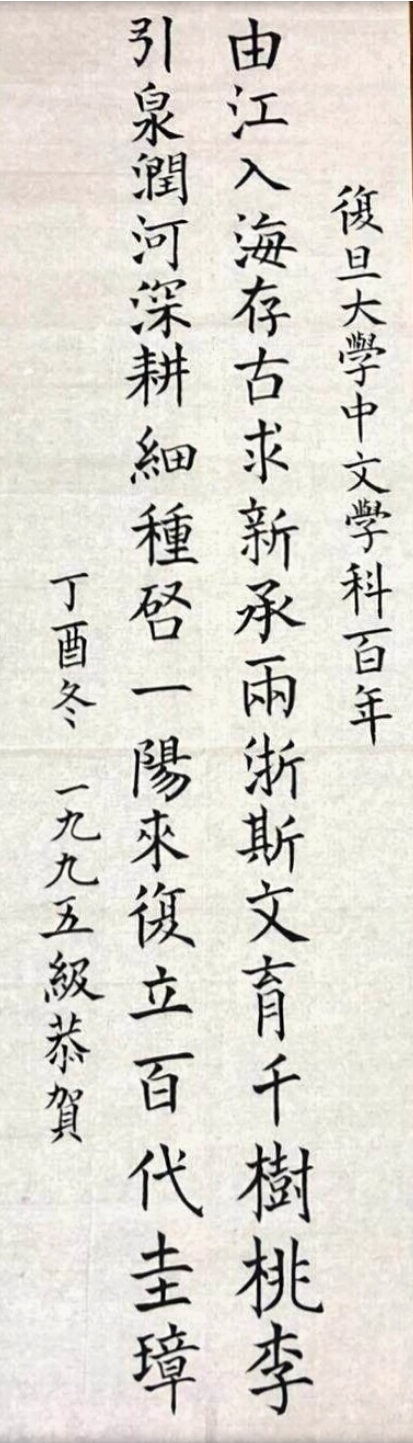 復旦大學中文學科百年
由江入海存古求新承兩浙斯文育千樹桃李
引泉潤河深耕細種啓一陽來復立百代圭璋
丁酉冬 一九九五級恭賀